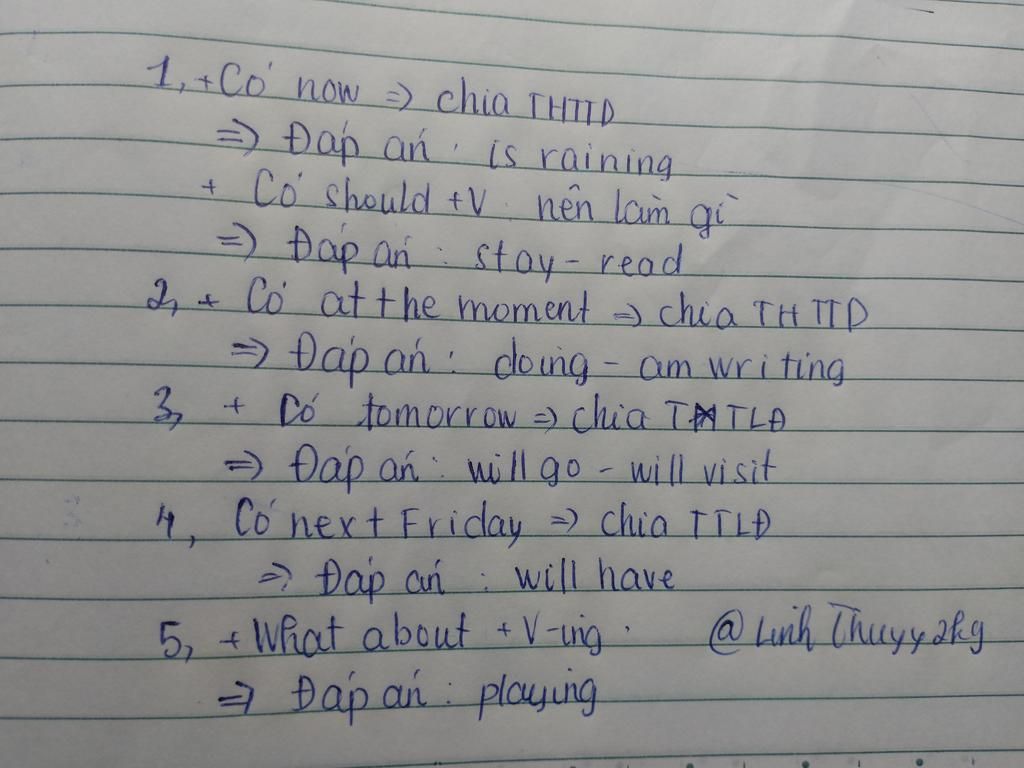 1, + Có now => chia THTTD
=> Đáp án : is raining
+ Có should + V : nên làm gì
=> Đáp án : stay - read
2, + Có at the moment => chia THTTD
=> Đáp án : doing - am writing
3, + Có tomorrow => chia TTLĐ
=> Đáp án : will go - will visit
4, Có next Friday => chia TTLĐ
=> Đáp án : will have
5, + What about + V-ing . @LinhThuyy2kg
=> Đáp án : playing